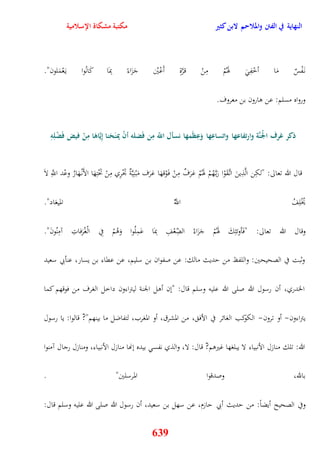 النهاية في الفتن والملاحم لابن كثير
مكتبة مشكاة الإسلامية
نَفْسٌ مَا أُخْفِيَ لَهُمْ مِنْ قُرَّةِ أَعْيُنٍ جَزَاءً بِمَا كَانُوا يَعْمَلون".
ورواه مسلم: عن هارون بن معروف.
ذكر غرف الجَنَّة وارتفاعها واتساعها وعِظَمها نسأل اللّه مِن فَضله أنْ يَمْنحَنا إِيَّاهَا مِنْ فيض فَضْلِهِ
قال اللّه تعالى: "لكِنِ الَّذِينَ اتَّقَوْا رَبَّهُمْ لَهُمْ غرَفٌ مِنْ فَوْقِهَا غرَف مَبْنِيَّةٌ تَجْرِي مِنْ تَحْتِهَا الأنْهَارُ وعْد اللّهِ لَا
يُخْلِفُ اللّهُ المِيعَاد".
وقال اللّه تعالى: "فَأُولئِكَ لَهُمْ جَزَاءُ الضِّعْفِ بِمَا عَمِلُوا وَهُمْ فِي الْغُرفاتِ آمِنُونَ".
وثبت في الصحيحين: واللفظ من حديث مالك: عن صفوان بن سليم، عن عطاء بن يسار، عنأبي سعيد
الخدري، أن رسول الله صلى الله عليه وسلم قال: "إن أهل الجنة ليتراءون داخل الغرف من فوقهم كما
يتراءون- أو ترون- الكوكب الغائر في الأفق، من المشرق، أو المغرب، لتفاضل ما بينهم"? قالوا: يا رسول
الله: تلك منازل الأنبياء لا يبلغها غيرهم? قال: لا، والذي نفسي بيده إنها منازل الأنبياء، ومنازل رجال آمنوا
بالله، وصدقوا المرسلين" .
وفي الصحيح أيضاً: من حديث أبي حازم، عن سهل بن سعيد، أن رسول الله صلى الله عليه وسلم قال:
639